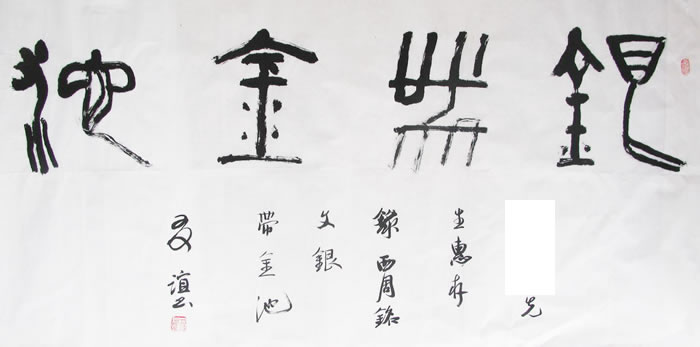 銀帶金池
先
生惠存
錄西周銘
文銀
帶金池
友誼書